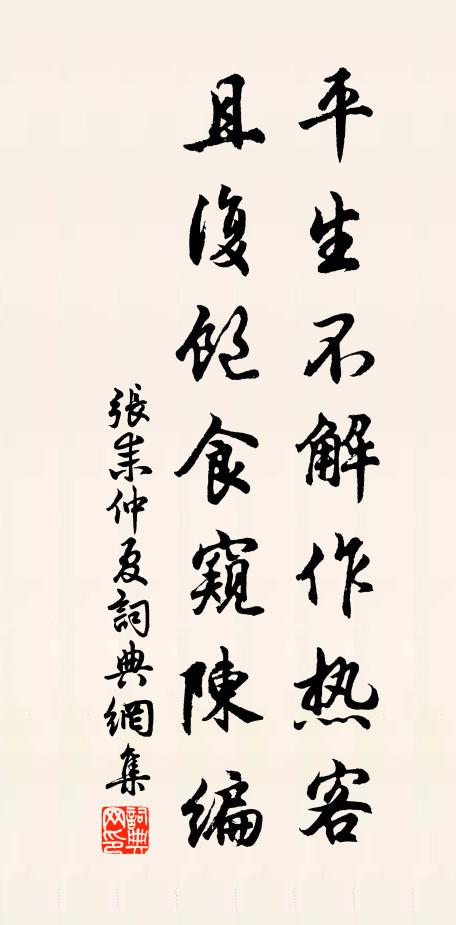 平生不解作热客
且復飽食窺陳編
張耒仲夏詞典網集
詞典網印